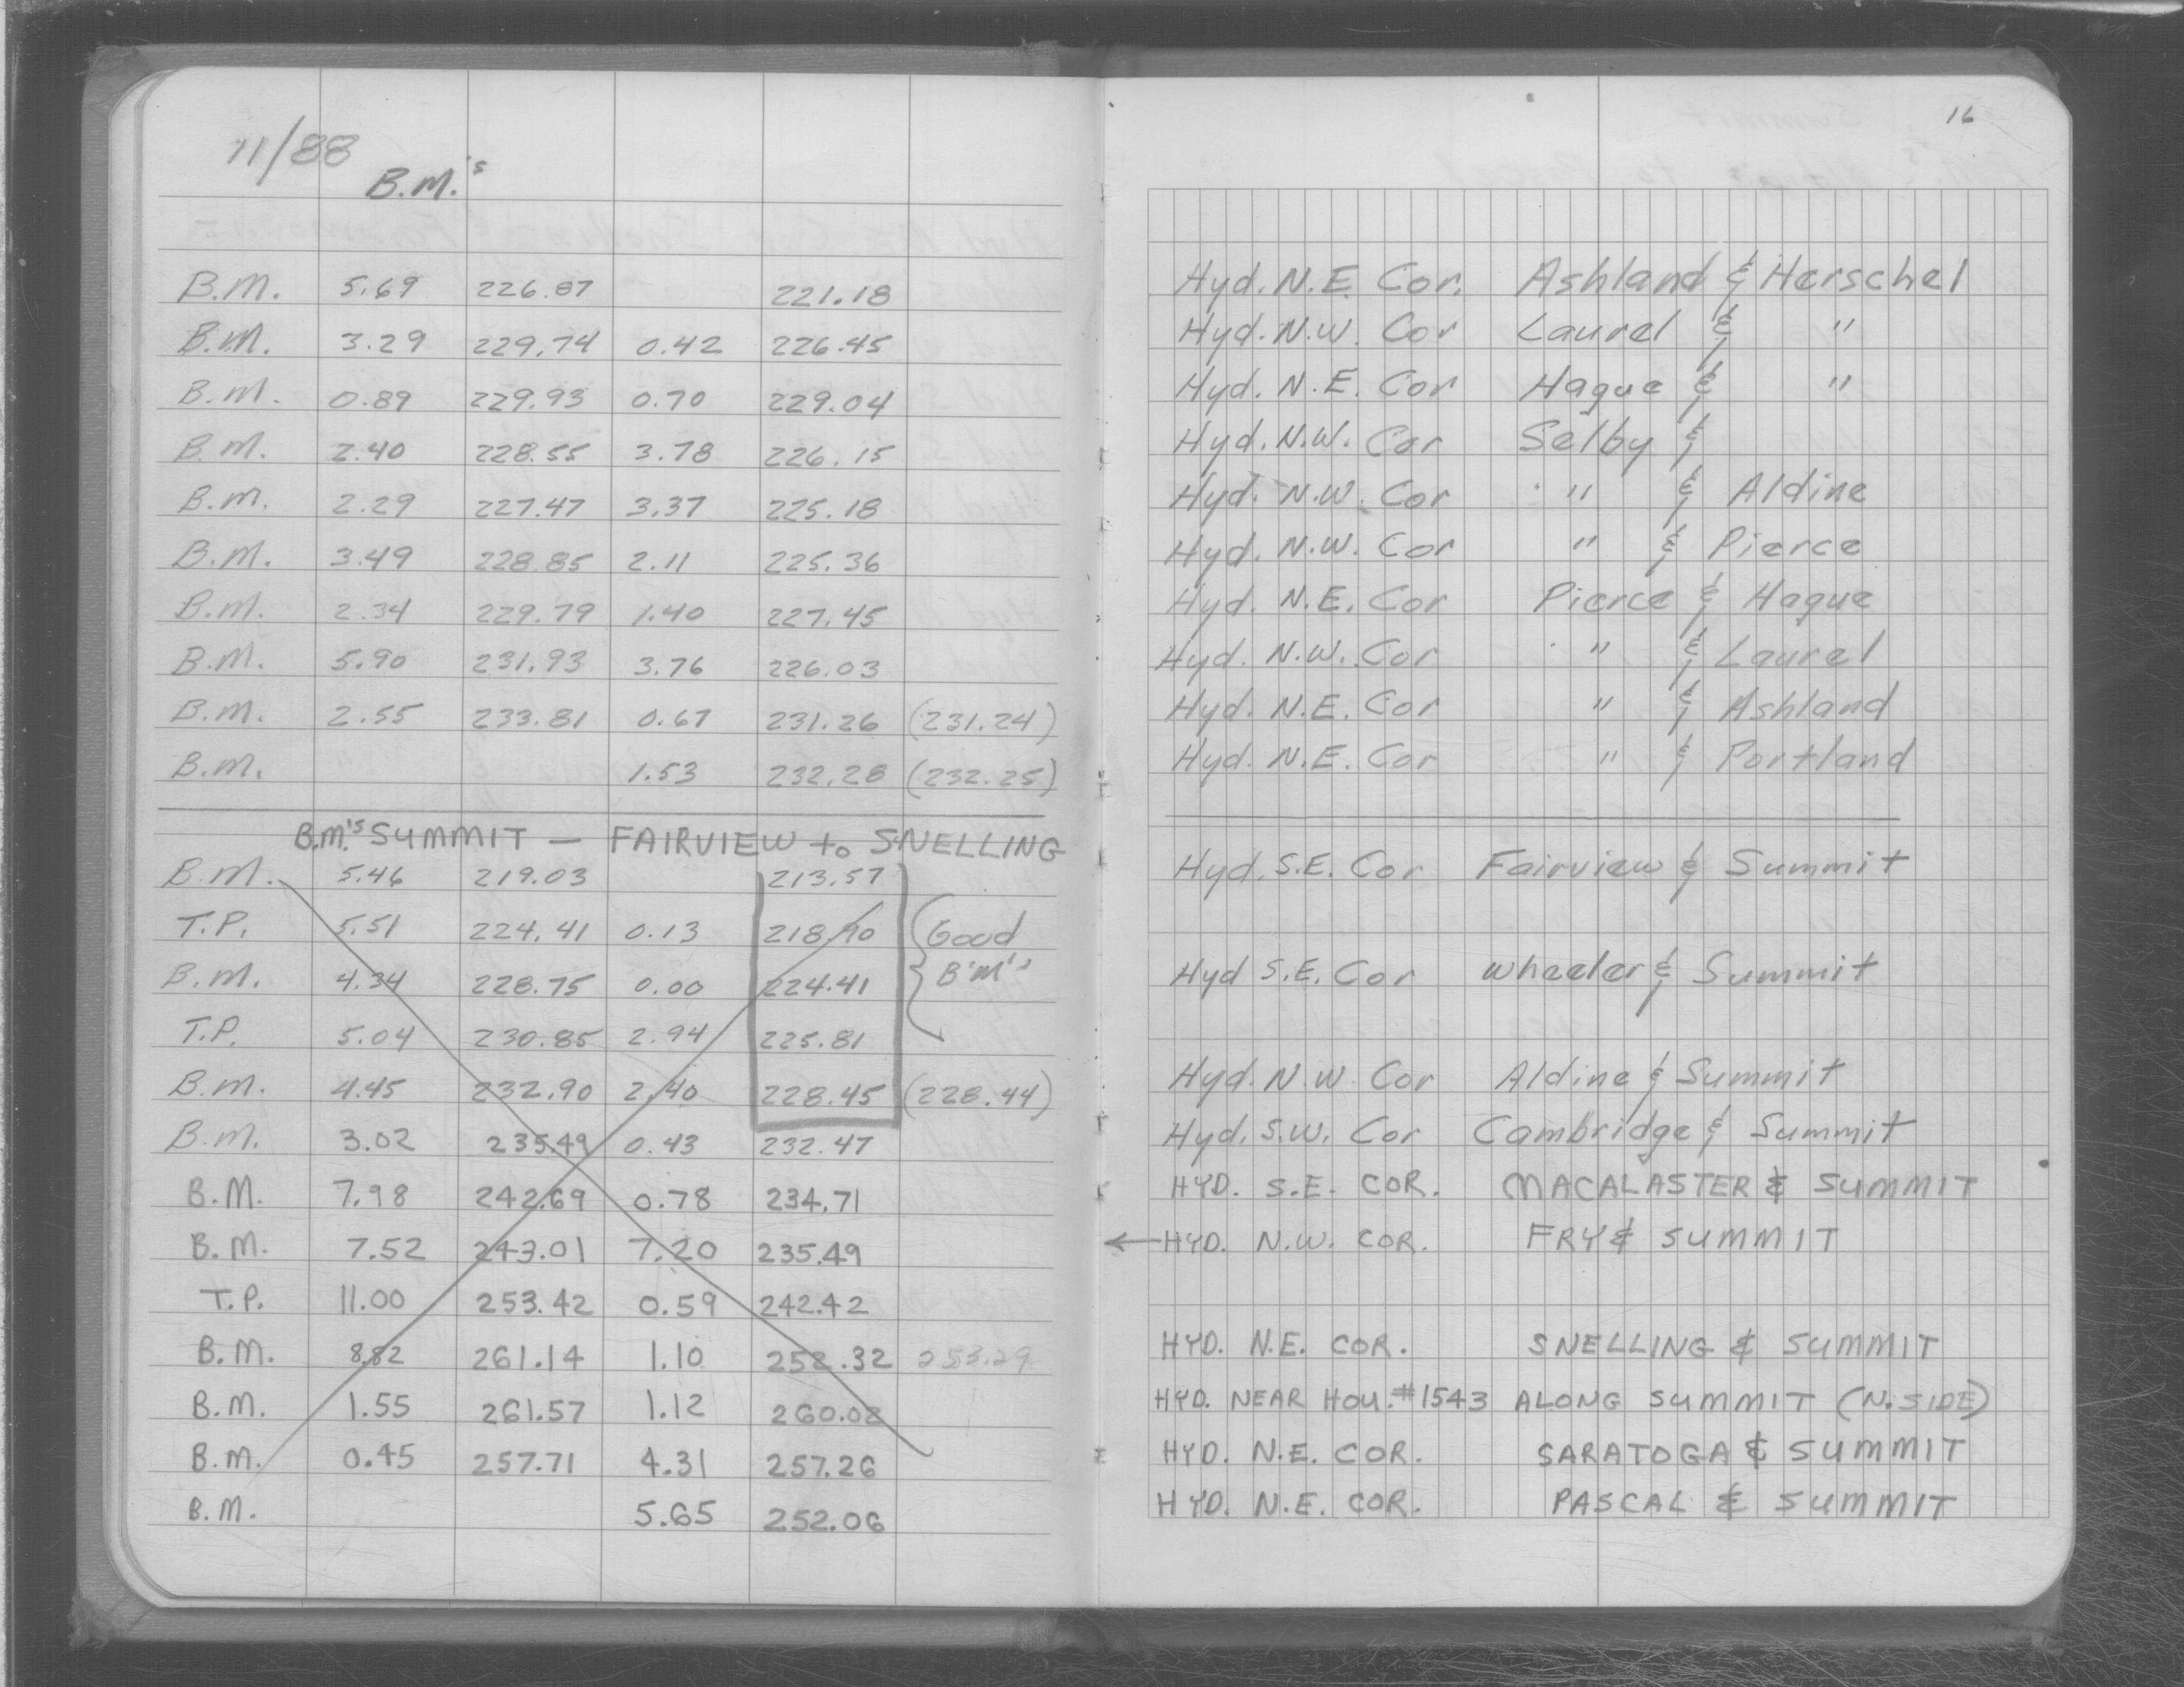 16
11/88
B.M.'s
B.M. 5.69 226.87 221.18 Hyd. N.E. Cor. Ashland & Herschel
B.M. 3.29 229.74 0.42 226.45 Hyd. N.W. Cor Laurel & "
B.M. 0.89 229.93 0.70 229.04 Hyd. N.E. Cor Hague & "
B.M. 2.40 228.55 3.78 226.15 Hyd. N.W. Cor Selby &
B.M. 2.29 227.47 3.37 225.18 Hyd. N.W. Cor " & Aldine
B.M. 3.49 228.85 2.11 225.36 Hyd. N.W. Cor " & Pierce
B.M. 2.34 229.79 1.40 227.45 Hyd. N.E. Cor Pierce & Hague
B.M. 5.90 231.93 3.76 226.03 Hyd. N.W. Cor " & Laurel
B.M. 2.55 233.81 0.67 231.26 (231.24) Hyd. N.E. Cor " & Ashland
B.M. 1.53 232.28 (232.25) Hyd. N.E. Cor " & Portland
B.M.'s SUMMIT — FAIRVIEW to SNELLING
B.M. 5.46 219.03 213.57 Hyd. S.E. Cor Fairview & Summit
T.P. 5.51 224.41 0.13 218.90 Good
B.M. 4.34 228.75 0.00 224.41 B.M's Hyd S.E. Cor Wheeler & Summit
T.P. 5.04 230.85 2.94 225.81
B.M. 4.45 232.90 2.40 228.45 (228.44) Hyd. N.W. Cor Aldine & Summit
B.M. 3.02 235.49 0.43 232.47 Hyd. S.W. Cor Cambridge & Summit
B.M. 7.98 242.69 0.78 234.71 HYD. S.E. COR. MACALASTER & SUMMIT
B.M. 7.52 243.01 7.20 235.49 ← HYD. N.W. COR. FRY & SUMMIT
T.P. 11.00 253.42 0.59 242.42
B.M. 8.82 261.14 1.10 252.32 253.29 HYD. N.E. COR. SNELLING & SUMMIT
B.M. 1.55 261.57 1.12 260.02 HYD. NEAR HOU. #1543 ALONG SUMMIT (N. SIDE)
B.M. 0.45 257.71 4.31 257.26 HYD. N.E. COR. SARATOGA & SUMMIT
B.M. 5.65 252.06 HYD. N.E. COR. PASCAL & SUMMIT